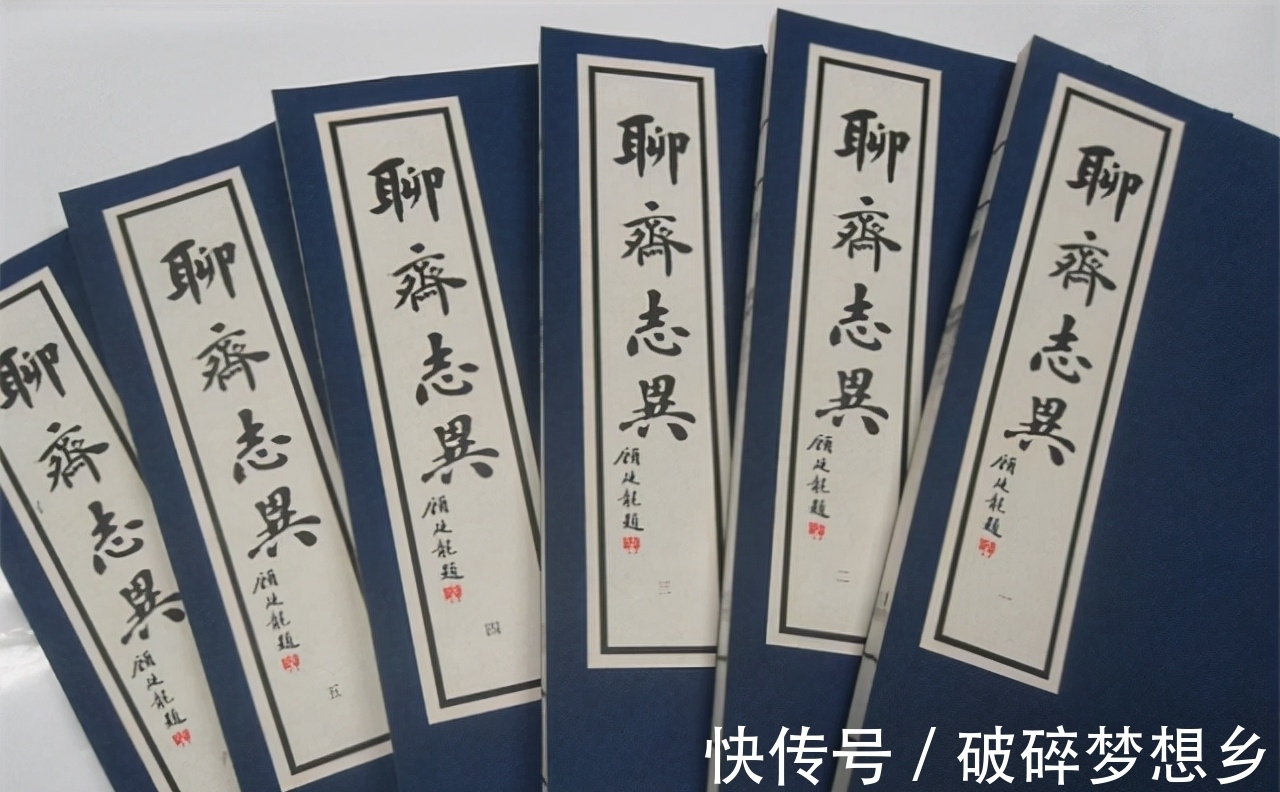 聊齋志異
顧廷龍題
一
聊齋志異
顧廷龍題
二
聊齋志異
顧廷龍題
三
聊齋志異
顧廷龍題
四
聊齋志異
顧廷龍題
五
聊齋志異
顧廷龍題
快传号 / 破碎梦想乡